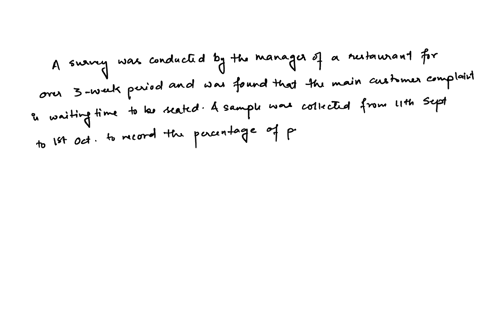 A survey was conducted by the manager of a restaurant for
over 3-week period and was found that the main customer complaint
is waiting time to be seated. A sample was collected from 11th Sept
to 1st Oct. to record the percentage of p